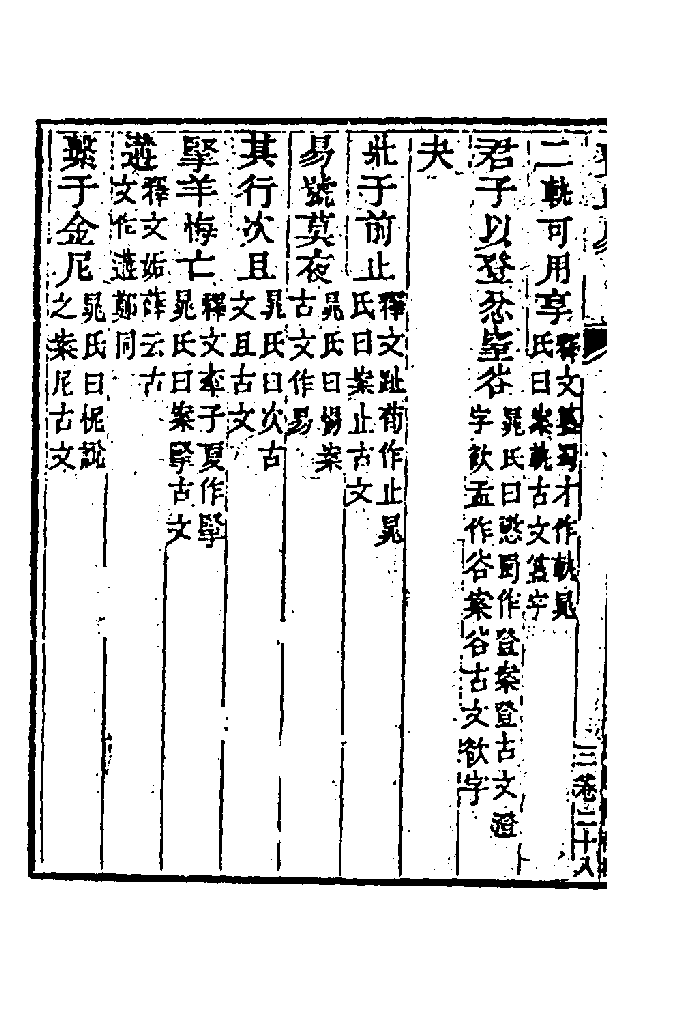 二軌可用享釋文簋蜀才作軌晁氏曰案軌古文簋字
君子以登忿𡌶谷晁氏曰懲蜀作登案登古文澄字欲孟作谷案谷古文欲字
夬
壯于前止釋文趾荀作止晁氏曰案止古文
易號莫夜晁氏曰惕案古文作易
其行次且晁氏曰次古文且古文
掔羊悔亡釋文牽子夏作掔晁氏曰案掔古文
遘釋文姤薛云古文作遘鄭同
繫于金尼晁氏曰柅說之案尼古文
三卷二十八